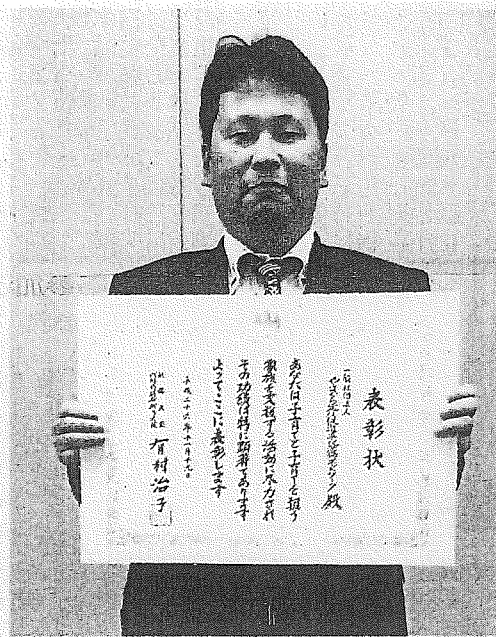 表彰状
一般社団法人
殿
あなたは子育てと子育てを担う
家族を支援する活動に尽力され
その功績は特に顕著であります
よってここに表彰します
平成二十六年十一月十九日
有村治子